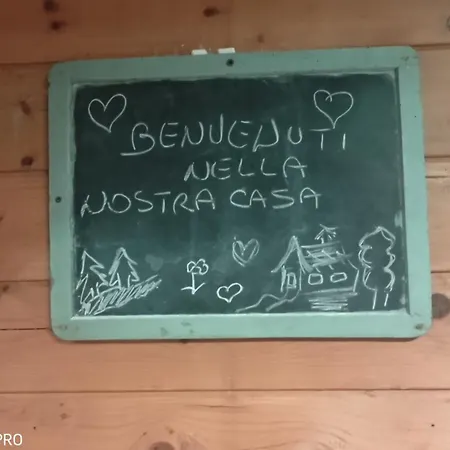 BENVENUTI
NELLA
NOSTRA CASA
PRO